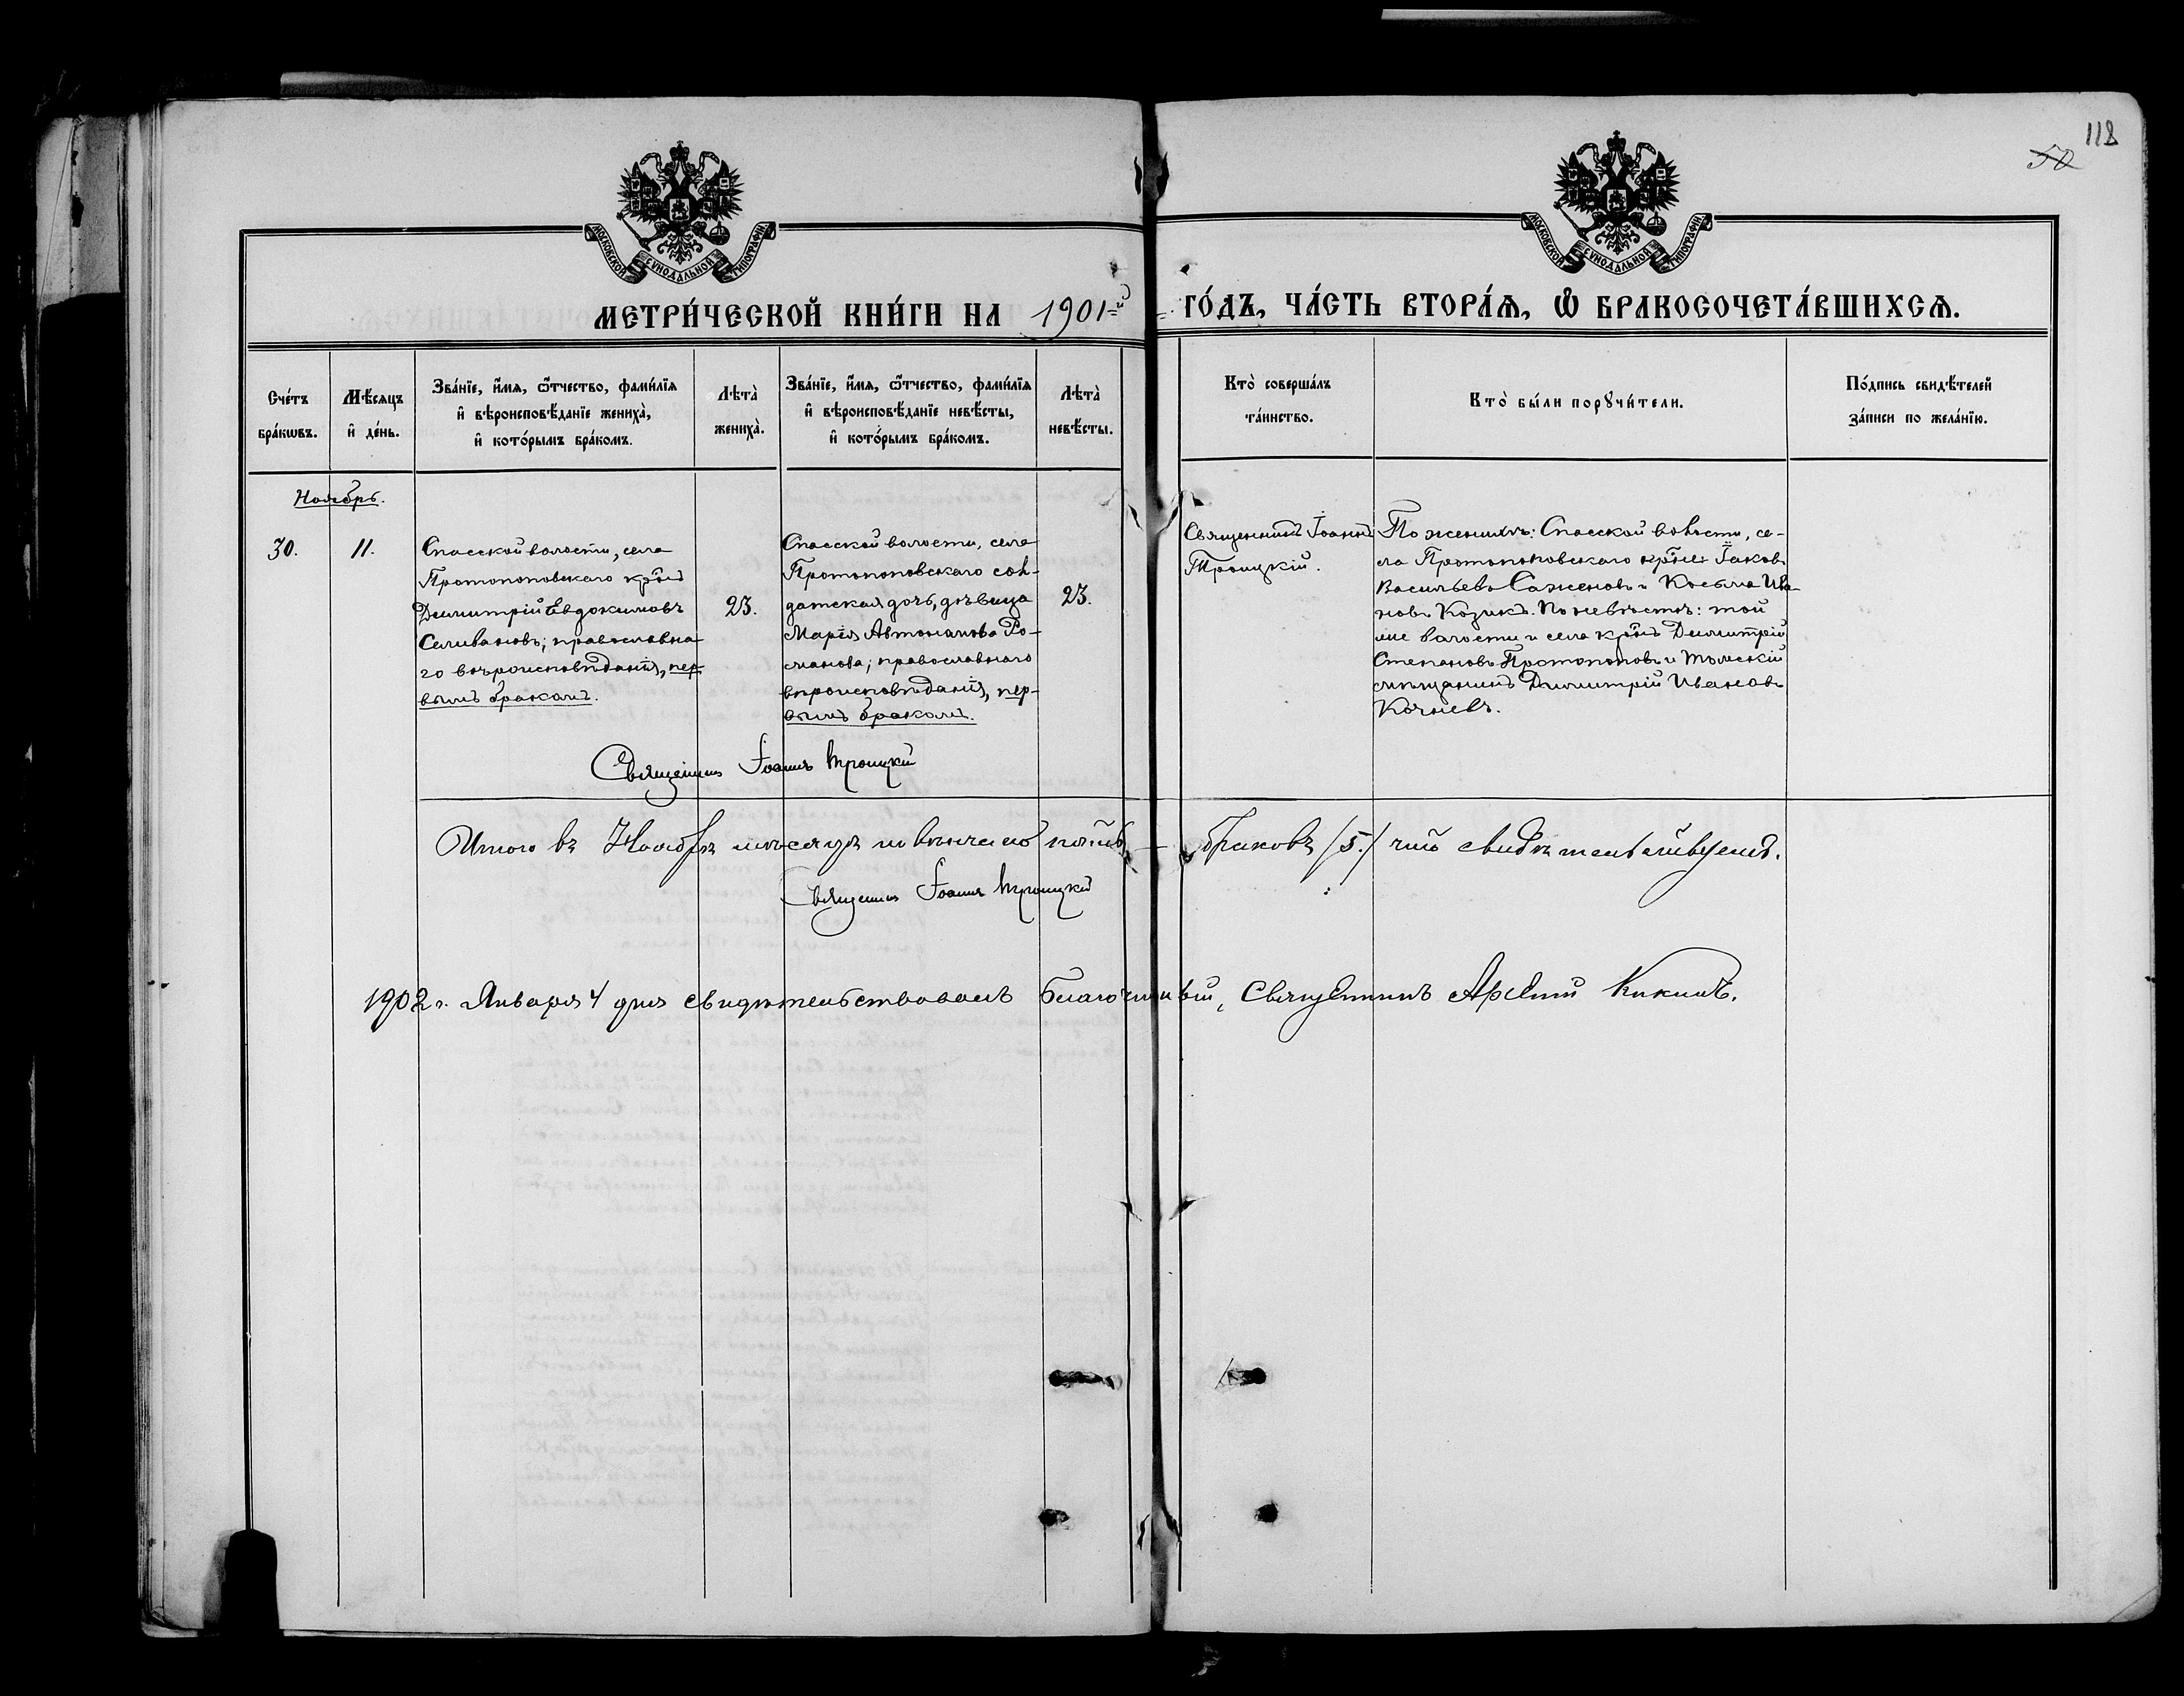 118
50
МОСКОВСКОЙ СѴНОДАЛЬНОЙ ТИПОГРАФІИ
МОСКОВСКОЙ СѴНОДАЛЬНОЙ ТИПОГРАФІИ
МЕТРИ́ЧЕСКОЙ КНИ́ГИ НА 1901=й ГО́ДЪ, ЧА́СТЬ ВТОРА́Я, Ѡ҆ БРАКОСОЧЕТА́ВШИХСЯ.
Сче́тъ
бра́кѡвъ.
Мѣ́сяцъ
и҆ де́нь.
Зва́нїе, и҆́мя, ѻ҆́тчество, фами́лїя
и҆ вѣроисповѣ́данїе жениха̀,
и҆ кото́рымъ бра́комъ.
Лѣта̀
жениха̀.
Зва́нїе, и҆́мя, ѻ҆́тчество, фами́лїя
и҆ вѣроисповѣ́данїе невѣ́сты,
и҆ кото́рымъ бра́комъ.
Лѣта̀
невѣ́сты.
Кто̀ соверша́лъ
та́инство.
Кто̀ бы́ли порꙋчи́тели.
По́дпись свидѣ́телей
за́писи по жела́нїю.
Ноябрь.
30.
11.
Спасской волости, села
Протопоповскаго кр̃нъ
Димитрій Евдокимовъ
Селивановъ; православна-
го вѣроисповѣданія, пер-
вымъ бракомъ.
23.
Спасской волости, села
Протопоповскаго сол-
датская дочь, дѣвица
Марія Автономова Ро-
манова; православнаго
вѣроисповѣданія, пер-
вымъ бракомъ.
23.
Священникъ Іоаннъ
Троицкій.
По женихѣ: Спасской волости, се-
ла Протопоповскаго кр̃не: Іаковъ
Васильевъ Саженовъ и Косьма Ива-
новъ Козикъ. По невѣстѣ: той
же волости и села кр̃нъ Димитрій
Степановъ Протопоповъ и Томскій
мѣщанинъ Димитрій Ивановъ
Качневъ.
Священникъ Іоаннъ Троицкій
Итого въ Ноябрѣ мѣсяцѣ повѣнчано пять браковъ /5./ что свидѣтельствуемъ.
Священникъ Іоаннъ Троицкій
1902 г. Января 4 дня свидѣтельствовалъ Благочинный, Священникъ Арсеній Кикинъ.